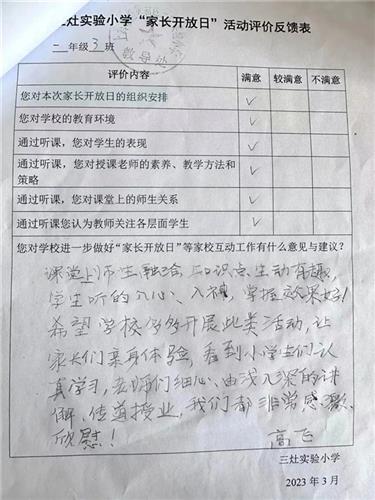 三灶实验小学“家长开放日”活动评价反馈表
二 年级 3 班
教导处
评价内容 满意 较满意 不满意
您对本次家长开放日的组织安排 ✓
您对学校的教育环境 ✓
通过听课，您对学生的表现 ✓
通过听课，您对授课老师的素养、教学方法和
策略 ✓
通过听课，您对课堂上的师生关系 ✓
通过听课您认为教师关注各层面学生 ✓
您对学校进一步做好“家长开放日”等家校互动工作有什么意见与建议？
课堂上师生融洽，知识点生动有趣，
学生听的入心、入神，掌握效果好！
希望学校多多开展此类活动，让
家长们亲身体验，看到小学生们认
真学习，老师们细心、由浅入深的讲
解、传道授业，我们都非常感激、
欣慰！
高飞
三灶实验小学
2023 年 3 月